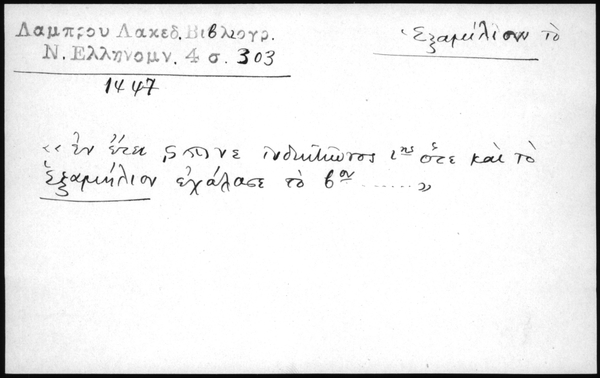 Λαμπρου Λακεδ. Βιβλιογρ.
Ν. Ελληνομν. 4 σ. 303
Ἑξαμίλιον τὸ
1447
«ἐν ἔτει ϛϡνε ἰνδικτιῶνος ιης ὅτε καὶ τὸ
Ἑξαμήλιον ἐχάλασε τὸ βον ...... »